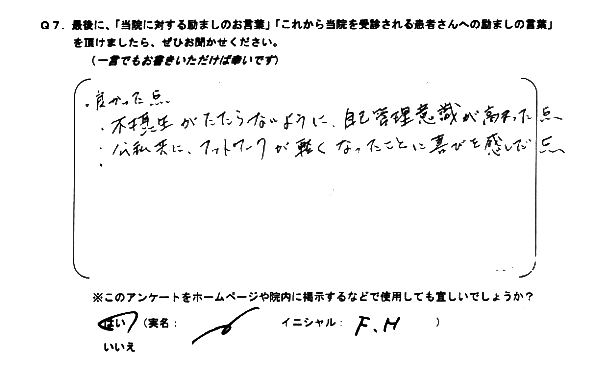 Q7. 最後に、「当院に対する励ましのお言葉」「これから当院を受診される患者さんへの励ましの言葉」
を頂けましたら、ぜひお聞かせください。
(一言でもお書きいただければ幸いです)
・良かった点
・不摂生がたたらないように、自己管理意識が高まった点
・公私共に、フットワークが軽くなったことに喜びを感じた点
・
※このアンケートをホームページや院内に掲示するなどで使用しても宜しいでしょうか?
はい (実名: イニシャル: F.H )
いいえ